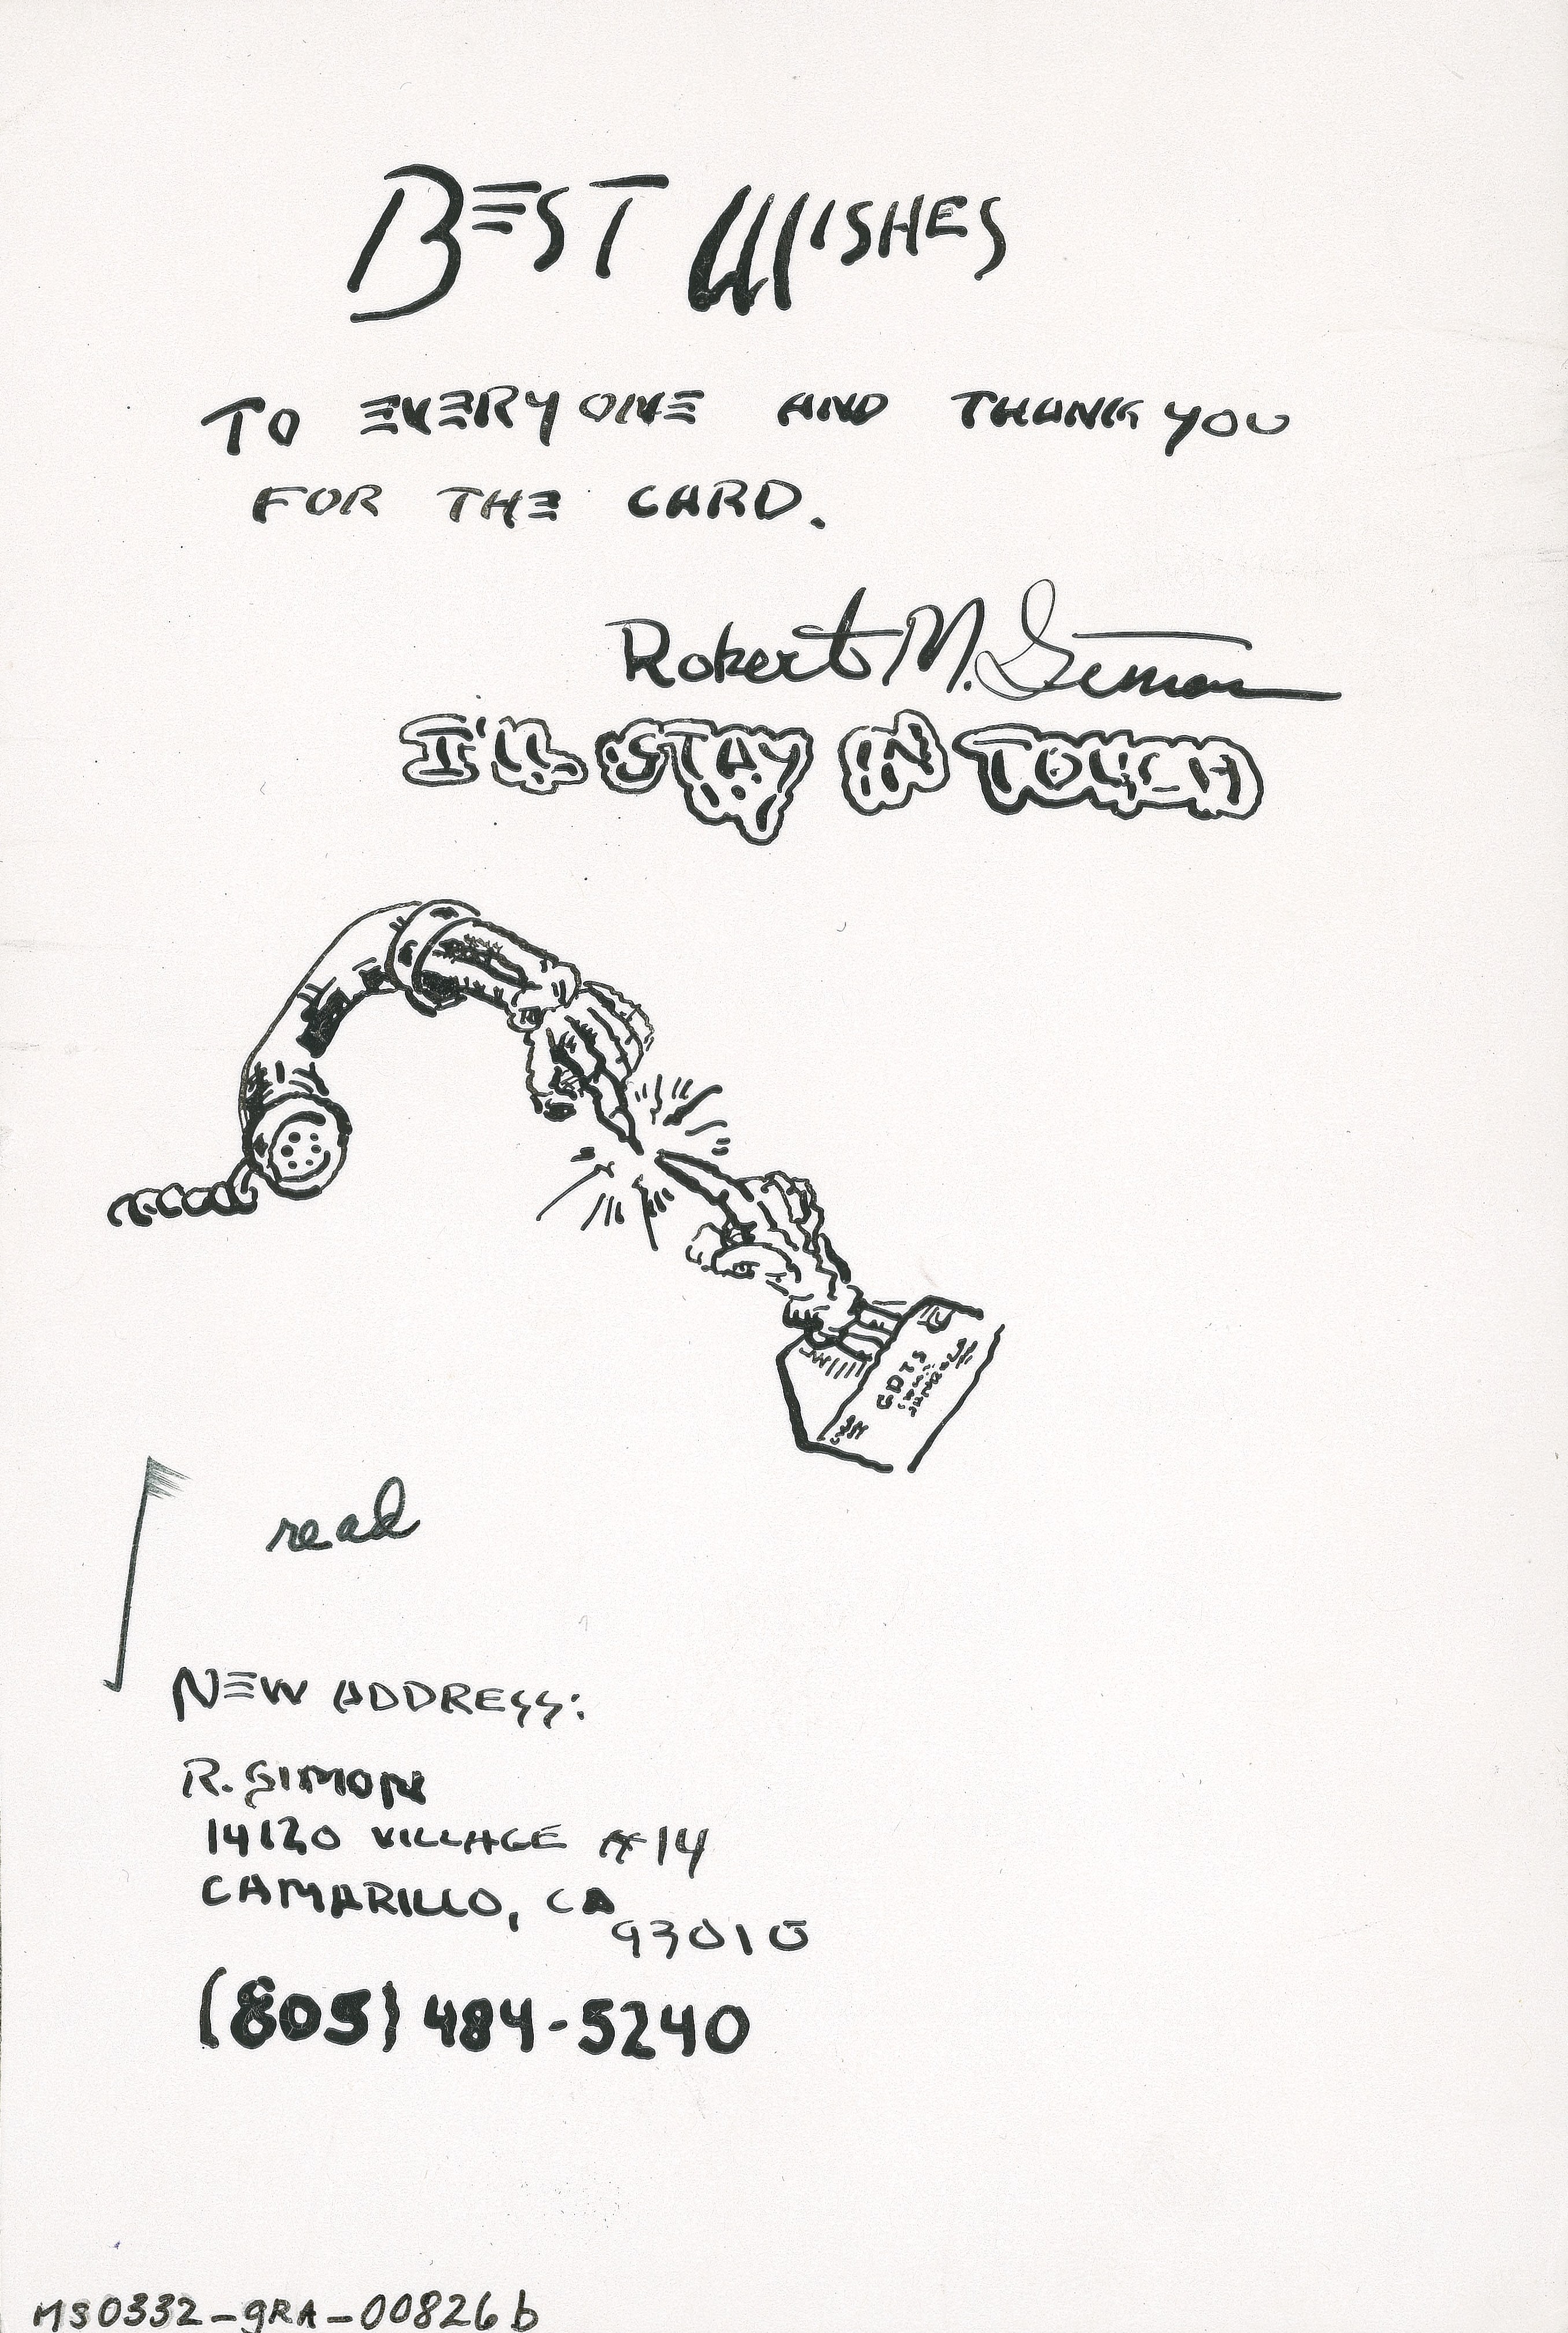 BEST WISHES
TO EVERYONE AND THANK YOU
FOR THE CARD.
Robert M. Simon
I'LL STAY IN TOUCH
GDTS
read
NEW ADDRESS:
R. SIMON
14120 VILLAGE #14
CAMARILLO, CA
93010
(805) 484-5240
MS0332-gRA-00826b